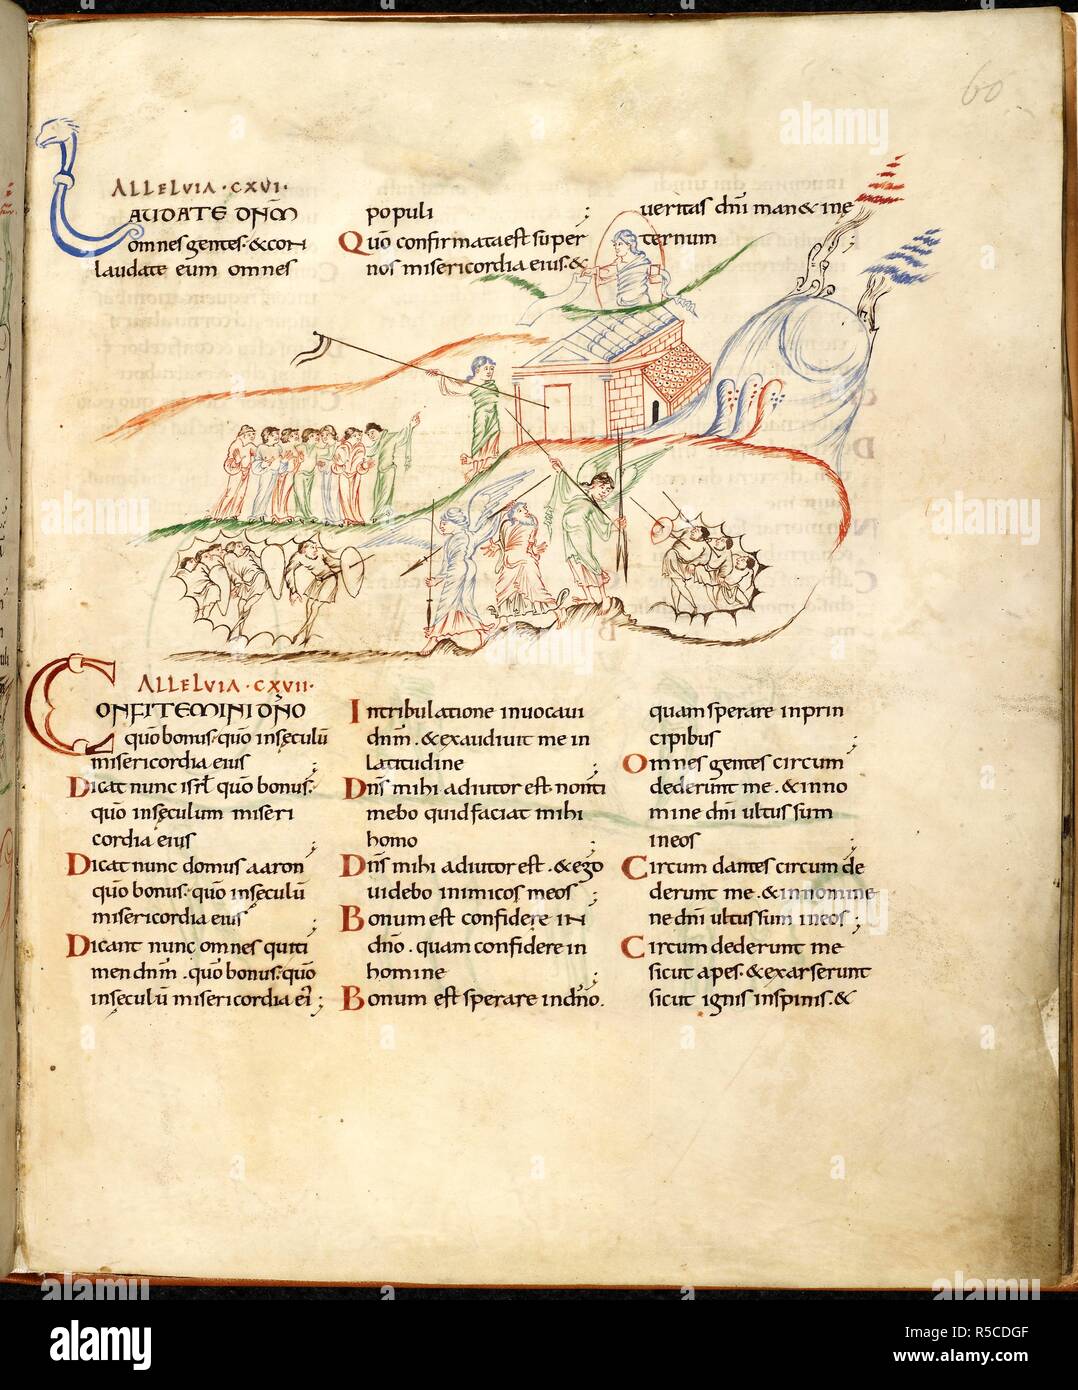 60
ALLELVIA·CXVI·
LAUDATE DN̄M
omnes gentes·&con
laudate eum omnes
populi ;
Quō confirmata est super
nos misericordia eius·&
ueritas dn̄i man&ine
ternum ;
ALLELVIA·CXVII·
CONFITEMINI DN̄O
quō bonus·quō insęculū
misericordia eius ;
Dicat nunc isrl̄ quō bonus·
quō insęculum miseri
cordia eius ;
Dicat nunc domus aaron
quō bonus·quō insęculū
misericordia eius ;
Dicant nunc omnes quiti
men dnm̄·quō bonus·quō
insęculū misericordia ei' ;
Intribulatione inuocaui
dnm̄·&exaudiuit me in
latitudine ;
Dn̄s mihi adiutor est·nonti
mebo quid faciat mihi
homo ;
Dn̄s mihi adiutor est·&ego
uidebo inimicos meos ;
Bonum est confidere in
dn̄o·quam confidere in
homine ;
Bonum est sperare indn̄o·
quam sperare inprin
cipibus ;
Omnes gentes circum
dederunt me·&inno
mine dn̄i ultus sum
ineos ;
Circum dantes circum de
derunt me·&innomine
ne dn̄i ultus sum ineos ;
Circum dederunt me
sicut apes·&exarserunt
sicut ignis inspinis·&
alamy
Image ID: R5CDGF
www.alamy.com